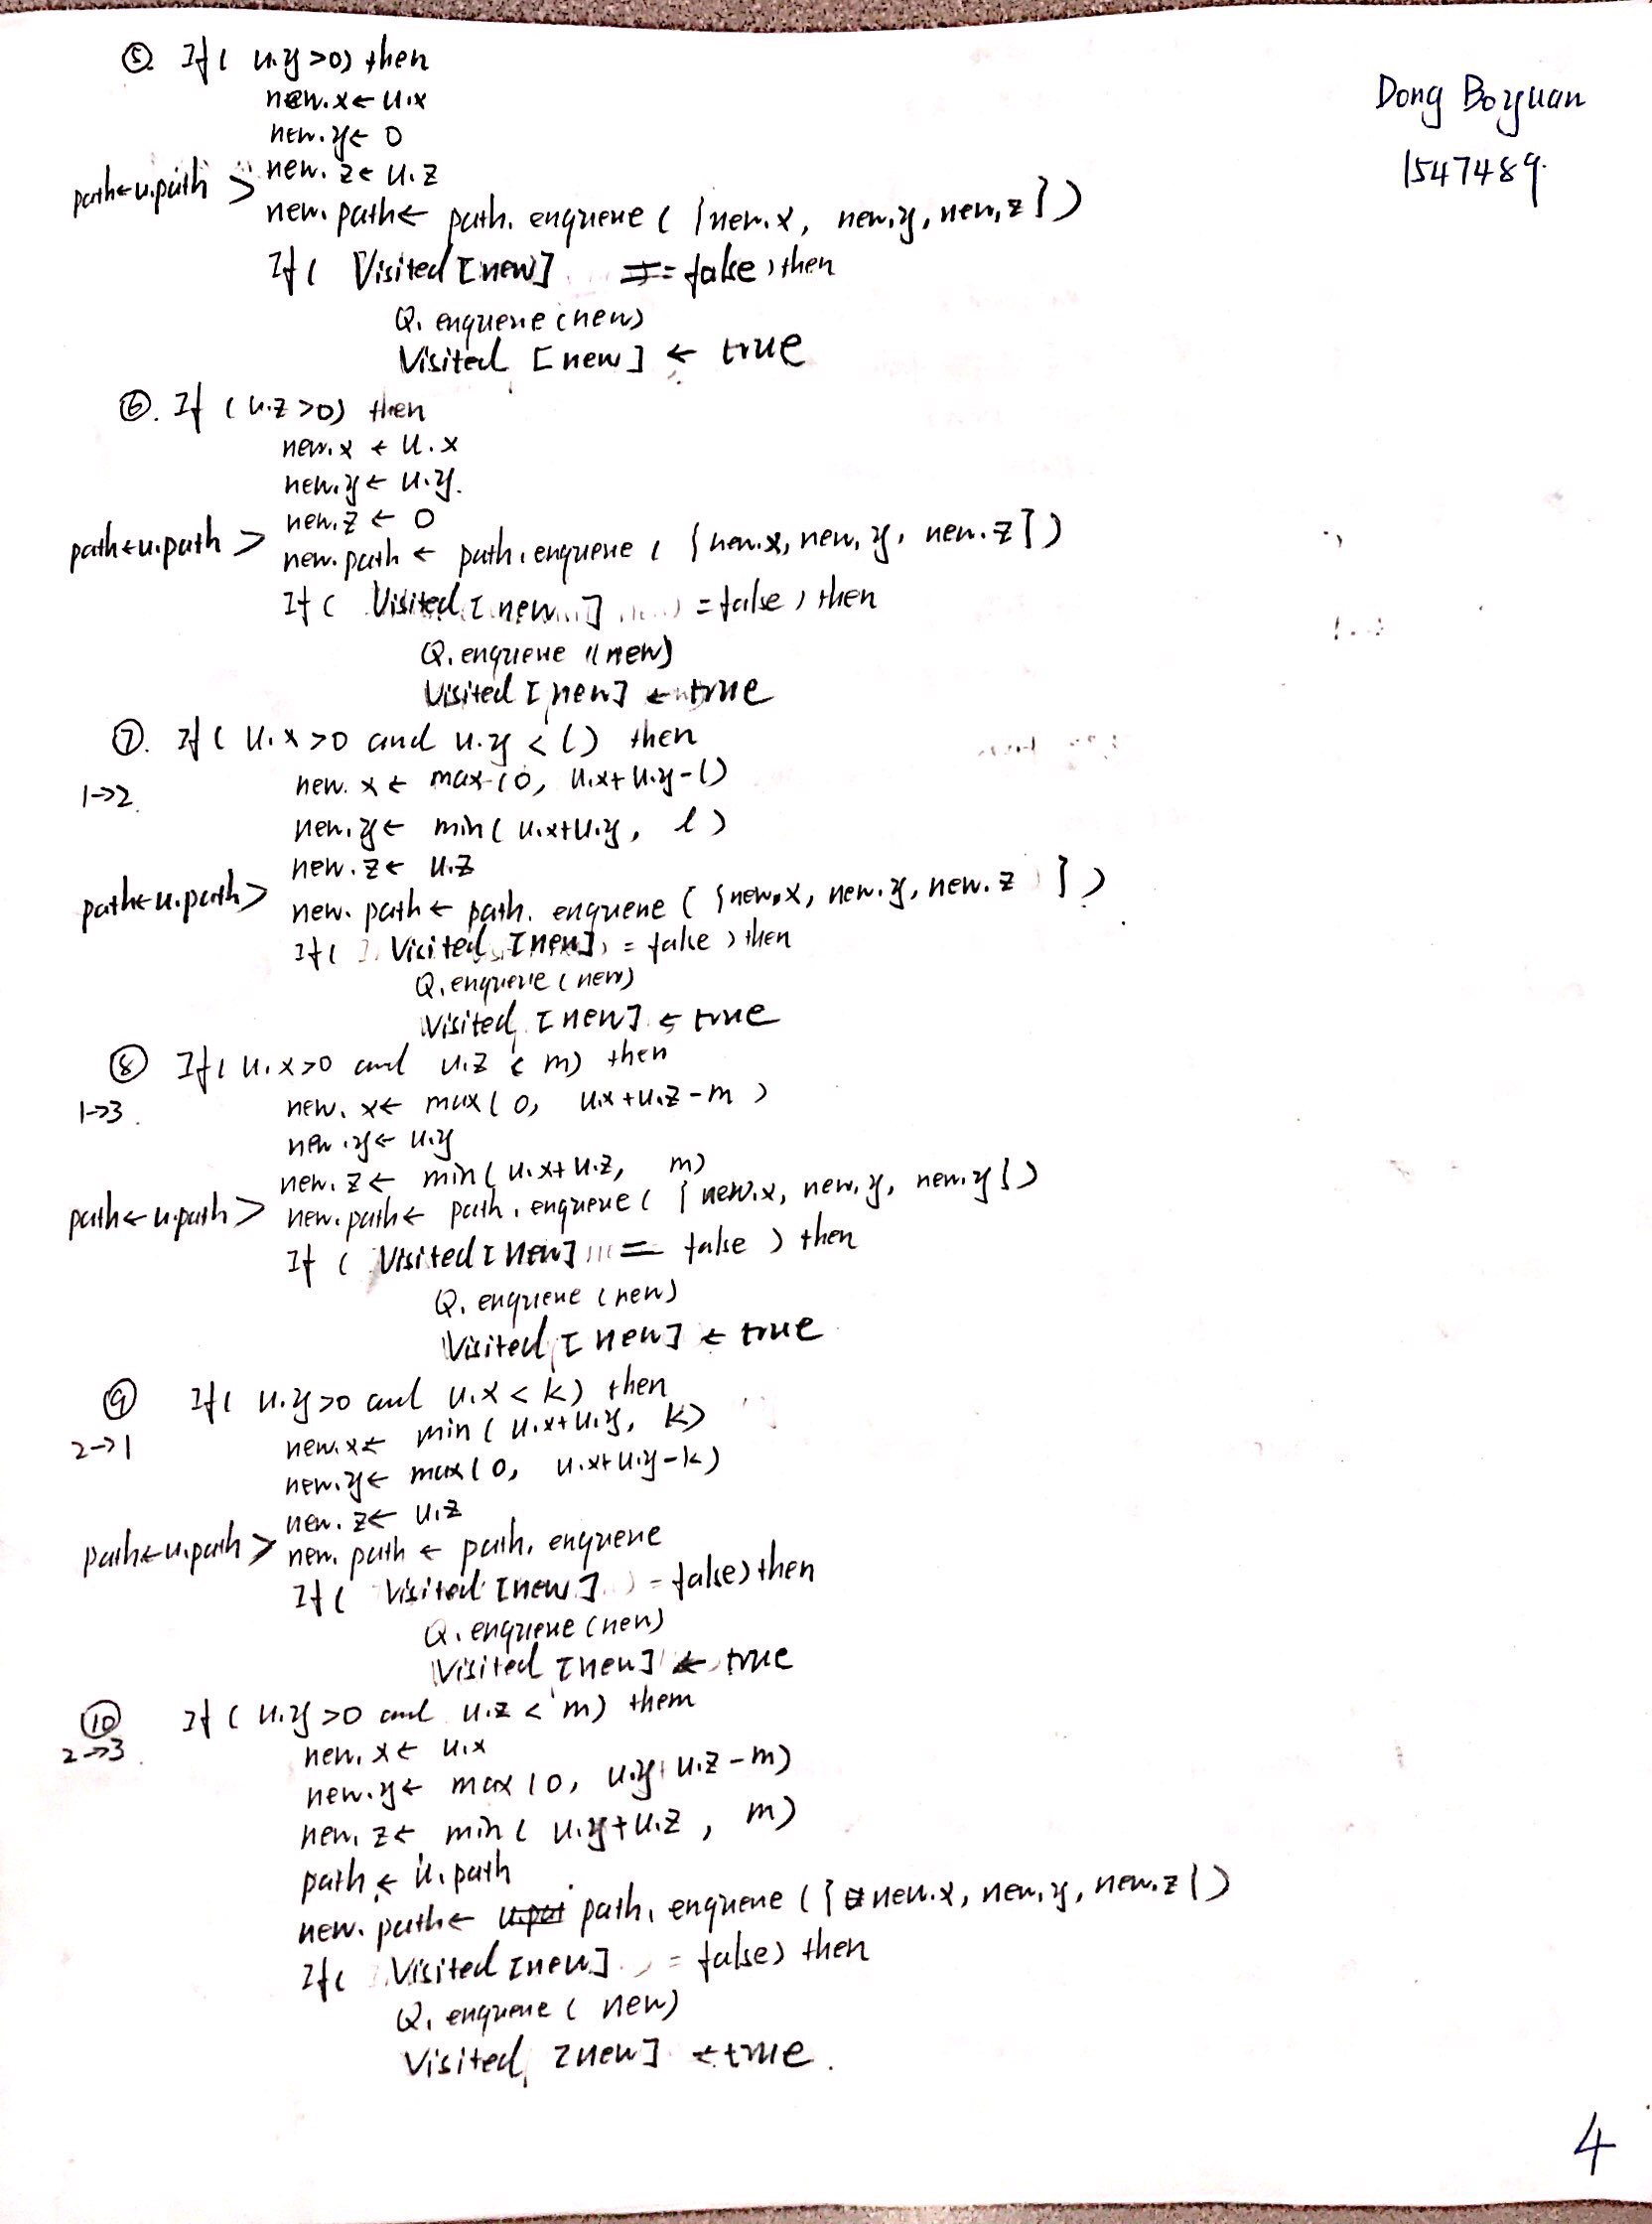 Dong Boyuan
1547489.
⑤. If( u.y>0) then
new.x← u.x
new.y← 0
path←u.path > new. z← u.z
new. path← path. enqueue ( {new.x, new.y, new.z})
If( Visited [new] == false) then
Q. enqueue (new)
Visited [new] ← true
⑥. If (u.z>0) then
new.x ← u.x
new.y← u.y.
new.z ← 0
path←u.path > new.path ← path.enqueue ( {new.x, new.y, new.z})
If ( Visited [new] =false) then
Q. enqueue (new)
Visited [new] ← true
⑦. If( u.x>0 and u.y <l) then
1→2. new. x← max(0, u.x+u.y-l)
new.y← min( u.x+u.y, l)
new.z← u.z
path←u.path> new. path← path. enqueue ( {new.x, new.y, new.z })
If( Visited [new] = false) then
Q. enqueue (new)
Visited [new] ← true
⑧ If( u.x>0 and u.z < m) then
1→3. new. x← max( 0, u.x+u.z-m )
new.y← u.y
new.z← min( u.x+u.z, m)
path←u.path> new.path← path. enqueue ( {new.x, new.y, new.y})
If ( Visited [new] == false ) then
Q. enqueue (new)
Visited [new] ← true
⑨ If( u.y>0 and u.x< k) then
2→1 new.x← min( u.x+u.y, k)
new.y← max(0, u.x+u.y-k)
new. z← u.z
path←u.path> new. path ← path. enqueue
If( Visited [new] =false) then
Q. enqueue (new)
Visited [new] ← true
⑩ If( u.y>0 and u.z < m) them
2→3. new. x← u.x
new.y← max(0, u.y+u.z-m)
new. z← min( u.y+u.z , m)
path ← u.path
new. path← path. enqueue ({new.x, new.y, new.z})
If( Visited [new] = false) then
Q. enqueue ( new)
Visited [new] ← true.
4